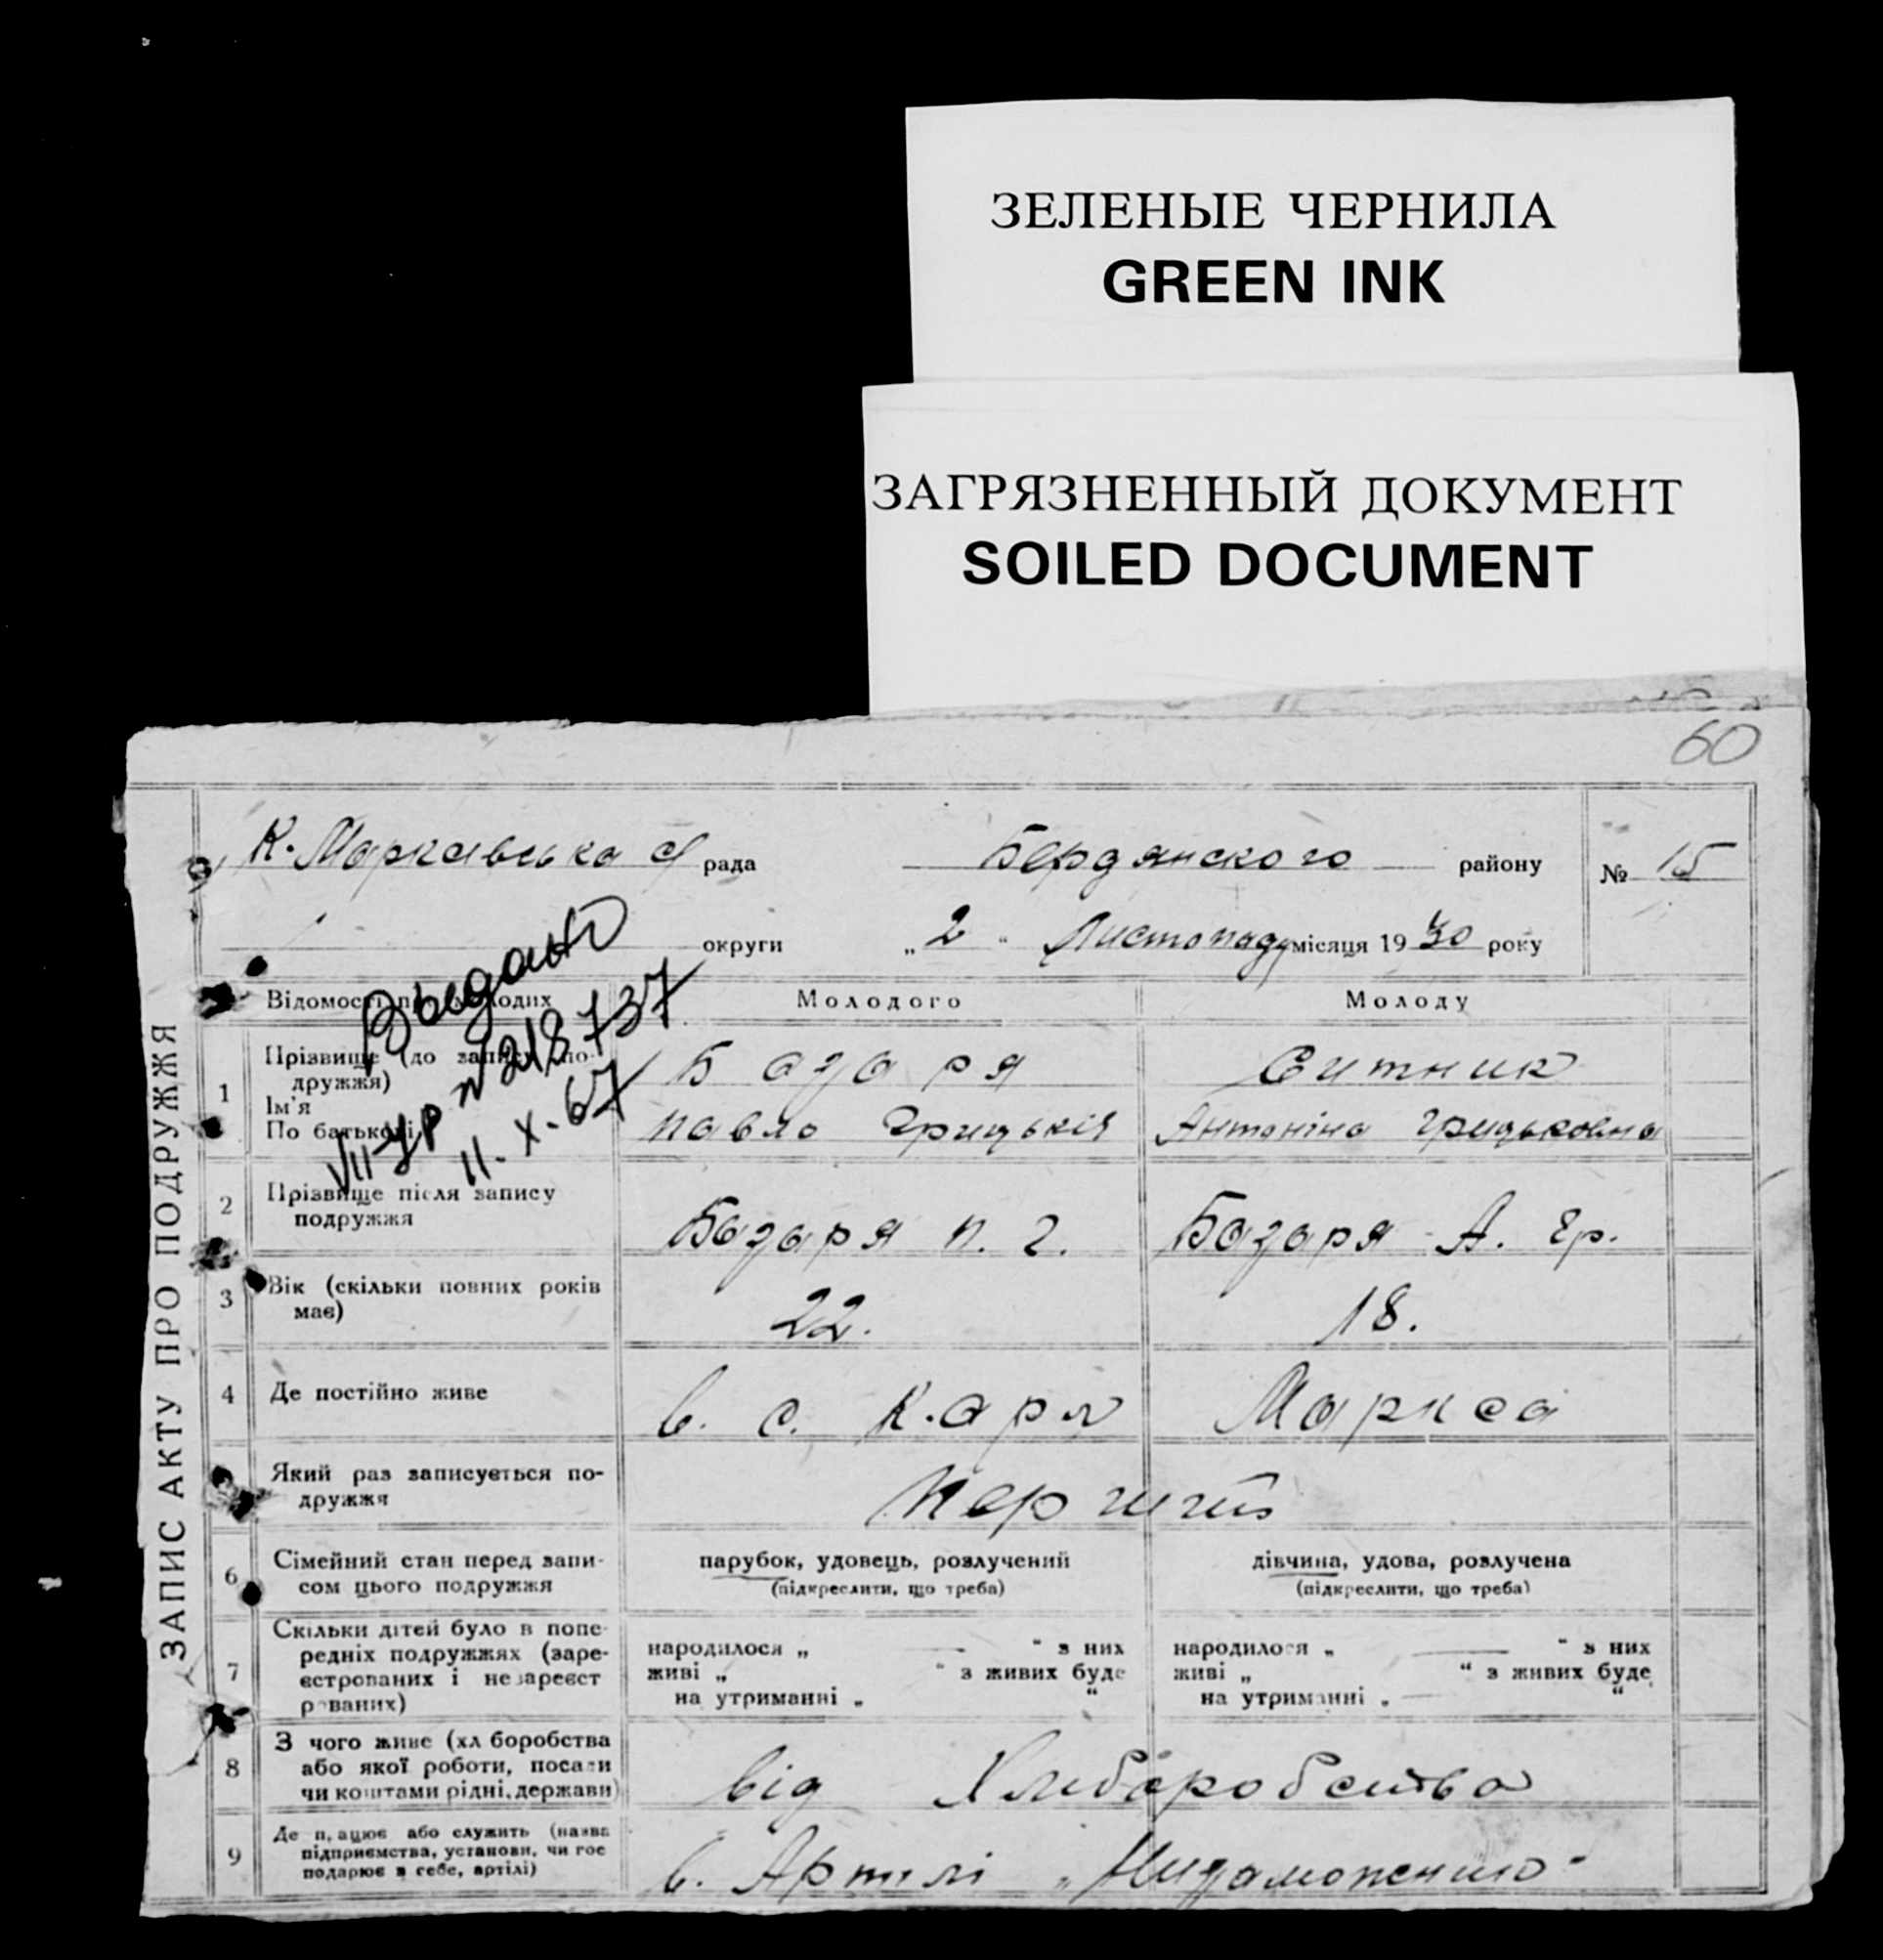 ЗЕЛЕНЫЕ ЧЕРНИЛА
GREEN INK
ЗАГРЯЗНЕННЫЙ ДОКУМЕНТ
SOILED DOCUMENT
60
ЗАПИС АКТУ ПРО ПОДРУЖЖЯ
К. Марксівська рада Бердянского району № 15
округи „2“ Листопаду місяця 1930 року
Видано
№ 218737
11.X.67
Відомості про молодих Молодого Молоду
1 Прізвище (до запису по-
дружжя) Базаря Ситник
Ім'я
По батькові Павло Грицьків Антоніна Грицьковна
2 Прізвище після запису
подружжя Базаря П. Г. Базаря А. Гр.
3 Вік (скільки повних років
має) 22. 18.
4 Де постійно живе в. с. Карл Маркса
Який раз записується по-
дружжя Перший
6 Сімейний стан перед запи-
сом цього подружжя
парубок, удовець, розлучений дівчина, удова, розлучена
(підкреслити, що треба) (підкреслити, що треба)
7 Скільки дітей було в попе-
редніх подружжях (заре-
єстрованих і незареєст
рованих)
народилося „ “ з них народилося „ “ з них
живі „ “ з живих буде живі „ “ з живих буде
на утриманні „ “ на утриманні „ “
8 З чого живе (хліборобства
або якої роботи, посади
чи коштами рідні, держави)
від Хлиборобства
9 Де працює або служить (назва
підприємства, установи, чи гос
подарює в себе, артілі)
в. Артилі